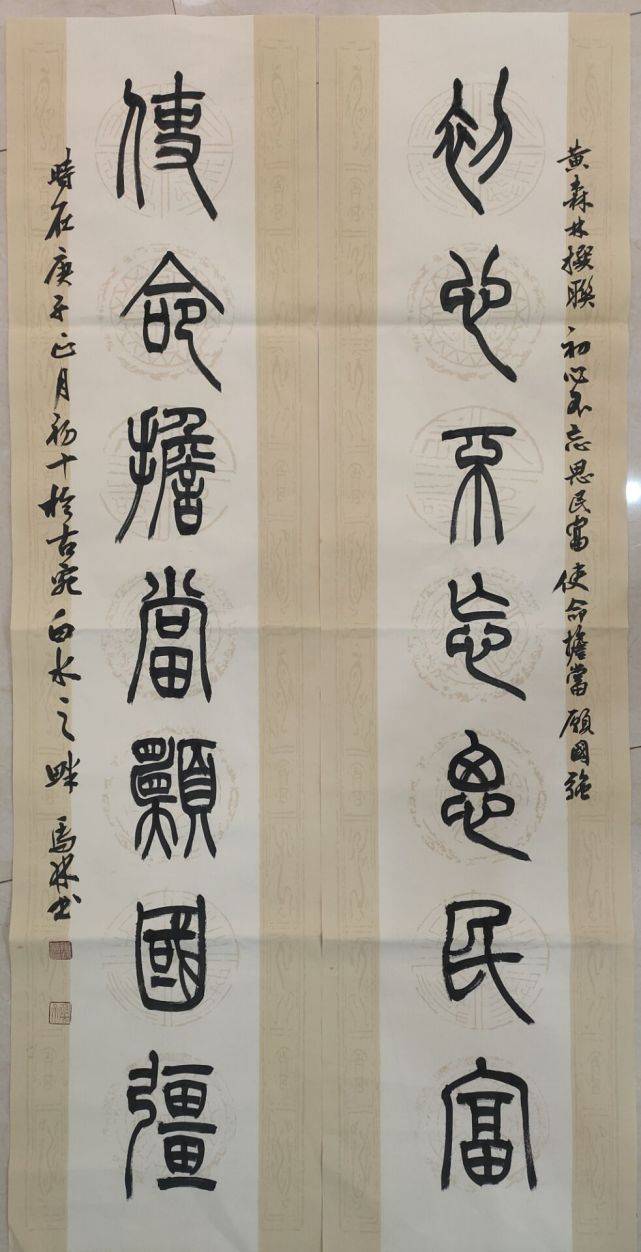 黄森林撰聯 初心不忘思民富 使命擔當願國強
初心不忘思民富
使命擔當願國彊
時在庚子正月初十於古宛白水之畔 馬林书